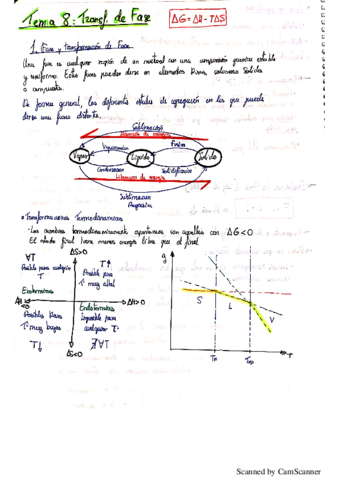 Tema 8: Transf. de Fase
ΔG = ΔH - TΔS
1. Fase y transformación de Fase
Una fase es cualquier región de un material con una composición química estable
y uniforme. Estas fases pueden darse en elementos puros, soluciones sólidas
o compuestos.
De forma general, los diferentes estados de agregación en los que puede
darse una fases distinta.
Sublimación
Vaporización
Fusión
Vapor
Líquido
Sólido
Condensación
Solidificación
Liberación de energía
Sublimación
Regresiva
Transformaciones Termodinámicas
- Los cambios termodinámicamente espontáneos son aquellos con ΔG<0
El estado final tiene menos energía libre que el
∀T
ΔS>0
T↑
Posible para cualquier
T
Posible para
Tª muy alta
Exotérmicas
ΔH<0
ΔH>0
Posible para
Tª muy bajas
Endotérmicas
Imposible para
cualquier Tª
T↓
∄T
ΔS<0
g
S
L
V
T
Scanned by CamScanner